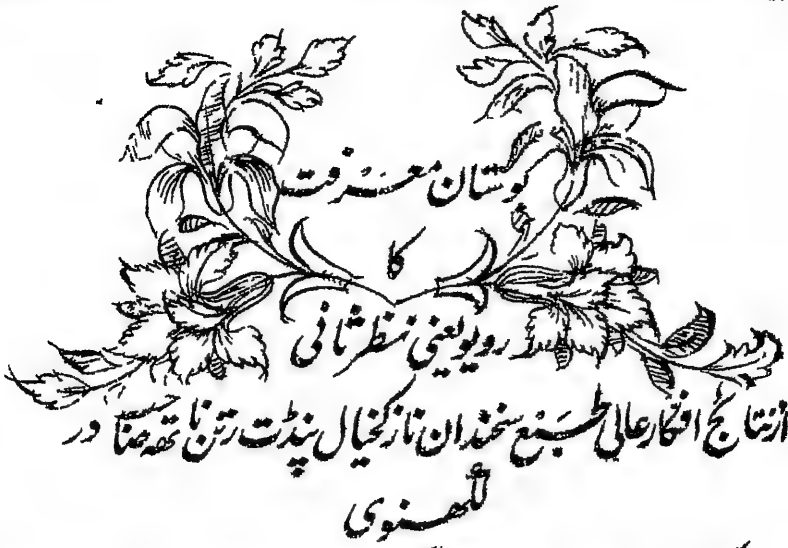 بوستان معرفت
کا
ریویو یعنی نظر ثانی
از نتائج افکار عالی طبع سخندان نازکخیال پنڈت رتن ناتھ صاحب در
لکھنوی